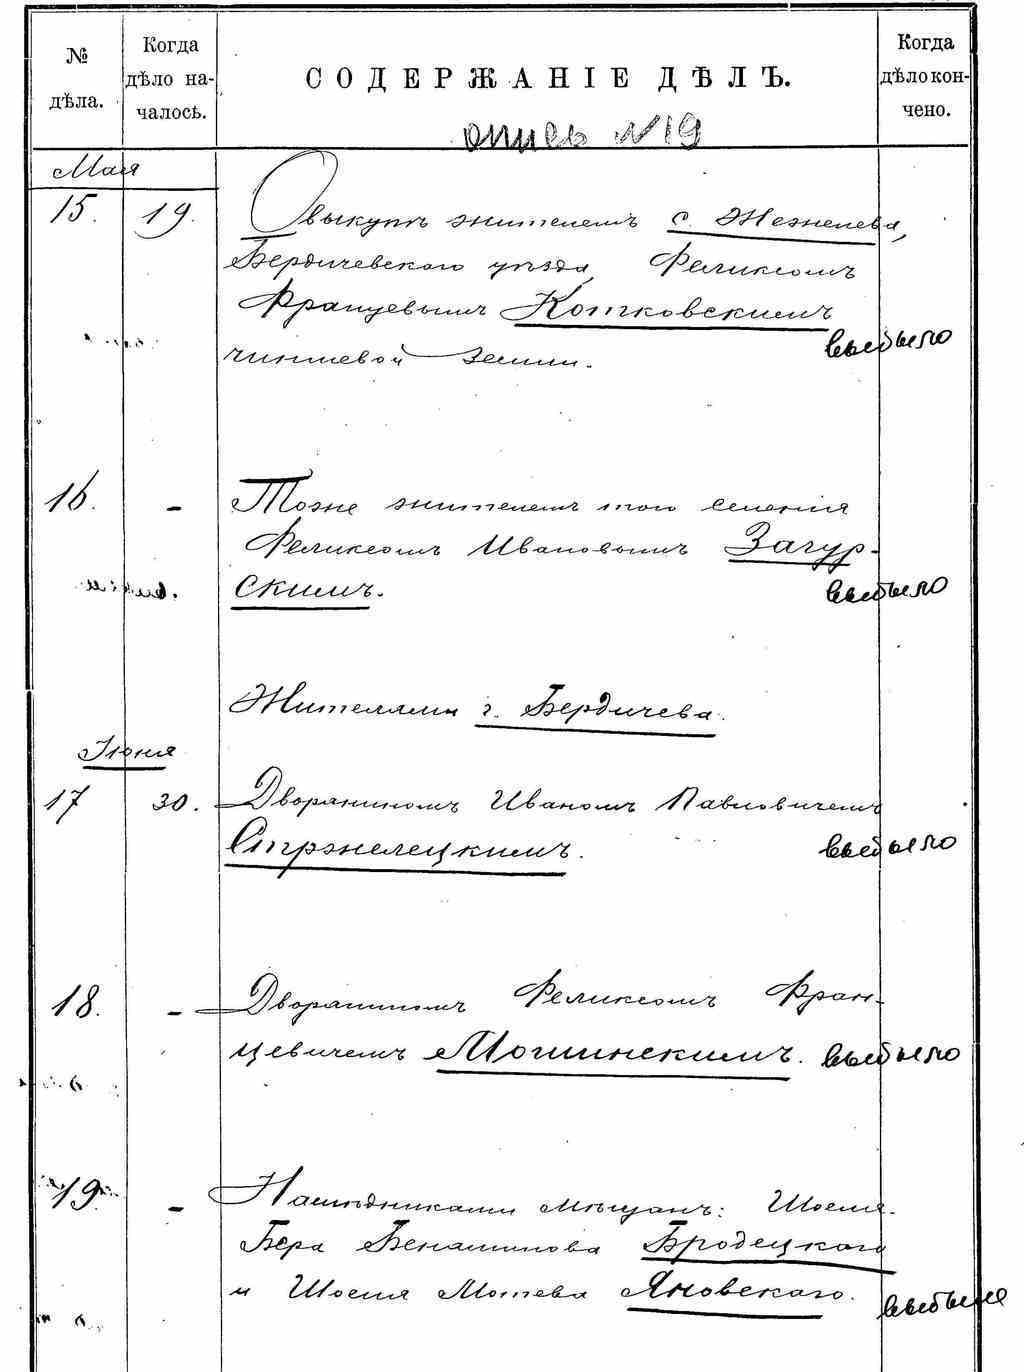 № дѣла.
Когда дѣло на-
чалось.
СОДЕРЖАНІЕ ДѢЛЪ.
Когда дѣло кон-
чено.
опись №19
Мая
15. 19. О выкупѣ жителемъ с. Жежелева,
Бердичевскаго уѣзда, Феликсомъ
Францевымъ Котковскимъ
чиншевой земли.
выбыло
16. - Тоже жителемъ того селенія
Феликсомъ Ивановымъ Загур-
скимъ.
выбыло
Жителями г. Бердичева.
Іюня
17 30. Дворяниномъ Иваномъ Павловичемъ
Стржелецкимъ.
выбыло
18. - Дворяниномъ Феликсомъ Фран-
цевичемъ Мошинскимъ. выбыло
19. - Наслѣдниками мѣщанъ: Шоеля-
Бера Бенашинова Бродецкаго
и Шоеля Мотева Яновскаго.
выбыло